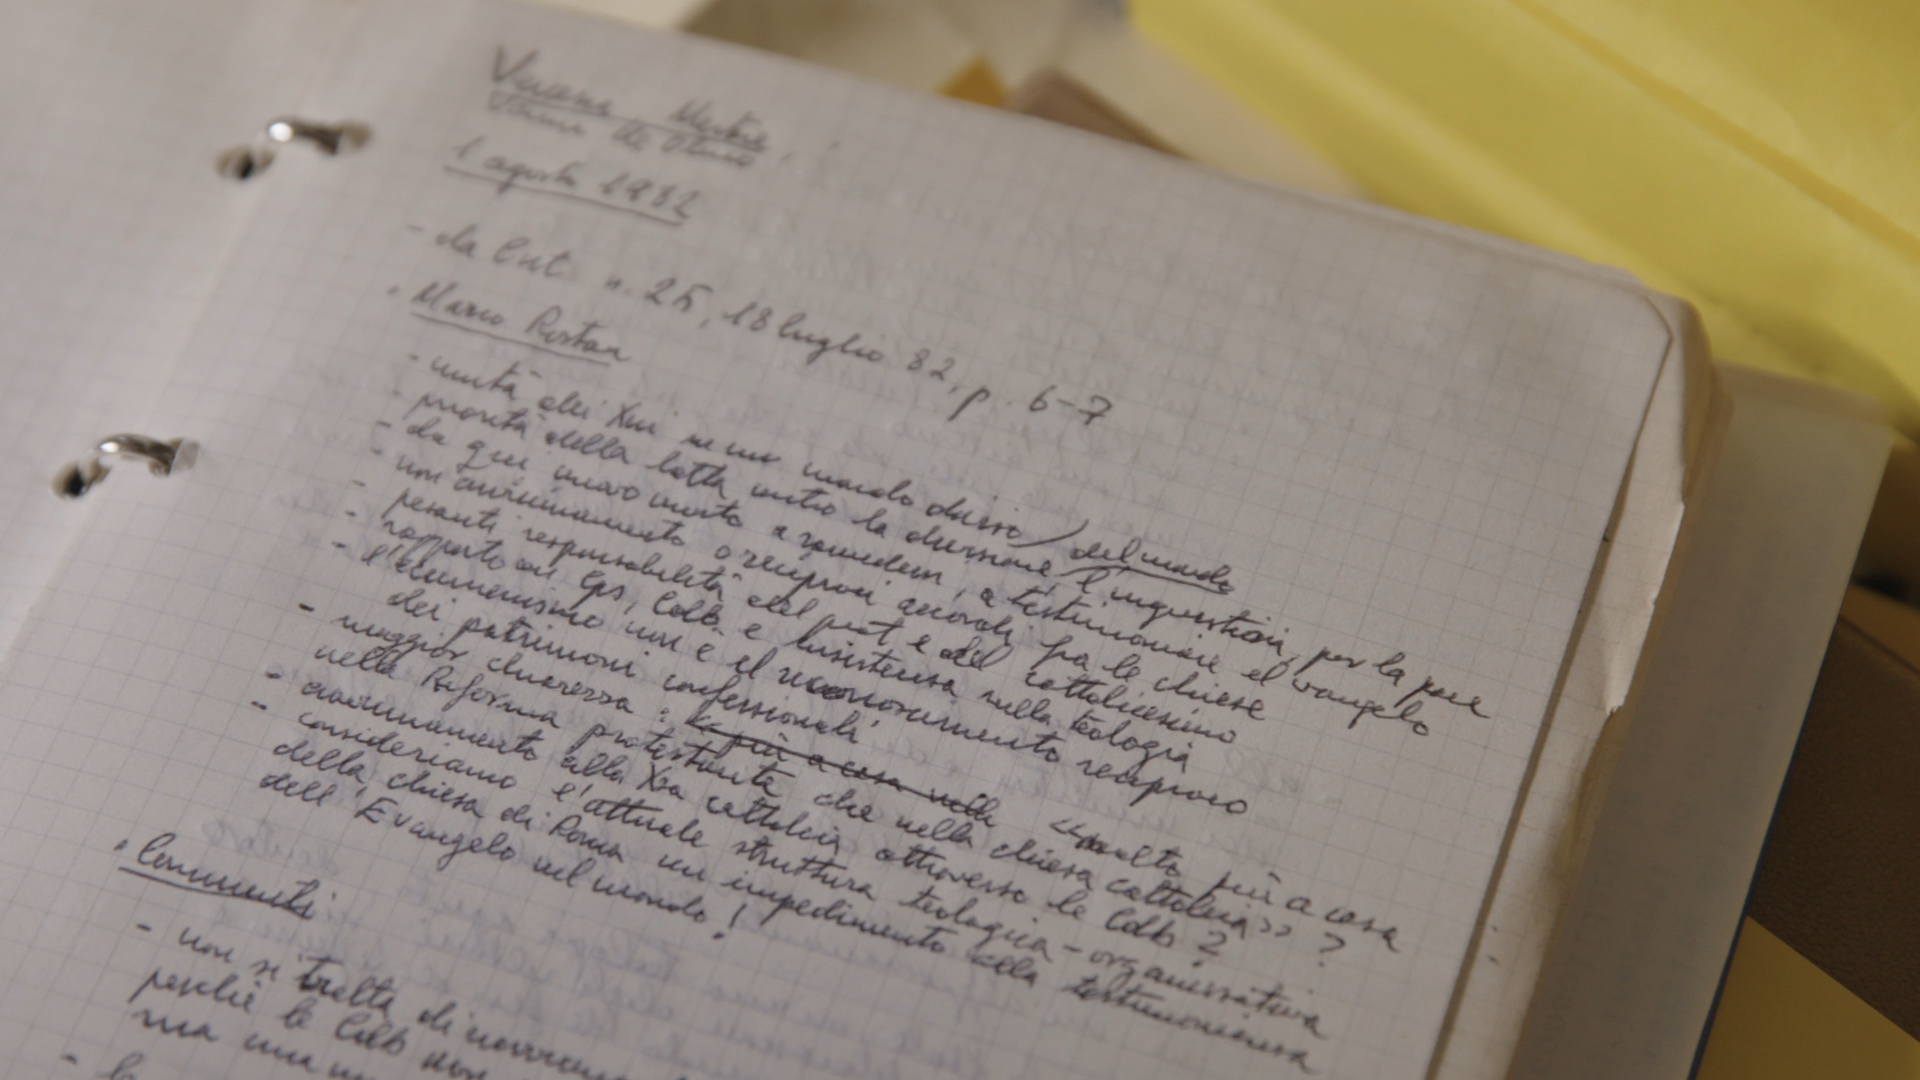 1 agosto 1982
- da Com. n. 25, 18 luglio 82, p. 6-7
. Marco Rostan
- unità dei Xni in un mondo diviso / del mondo
- priorità della lotta contro la divisione e l'ingiustizia, per la pace
- da qui nuovo invito a ravvedersi, a testimoniare el vangelo
- non avvicinamento o reciproci accordi fra le chiese
- pesanti responsabilità del prot e del cattolicesimo
- rapporto con Cps, CdB e insistenza sulla teologia
- l'Ecumenismo non è il riconoscimento reciproco
dei patrimoni confessionali
- maggior chiarezza: la più a casa nella «molto più a casa
nella Riforma protestante che nella chiesa cattolica»?
- avvicinamento alla Xsa cattolica attraverso le CdB?
- consideriamo l'attuale struttura teologica-organizzativa
della chiesa di Roma un impedimento alla testimonianza
dell'Evangelo nel mondo!
. Commenti
- non si tratta di
perché le CdB non
ma una